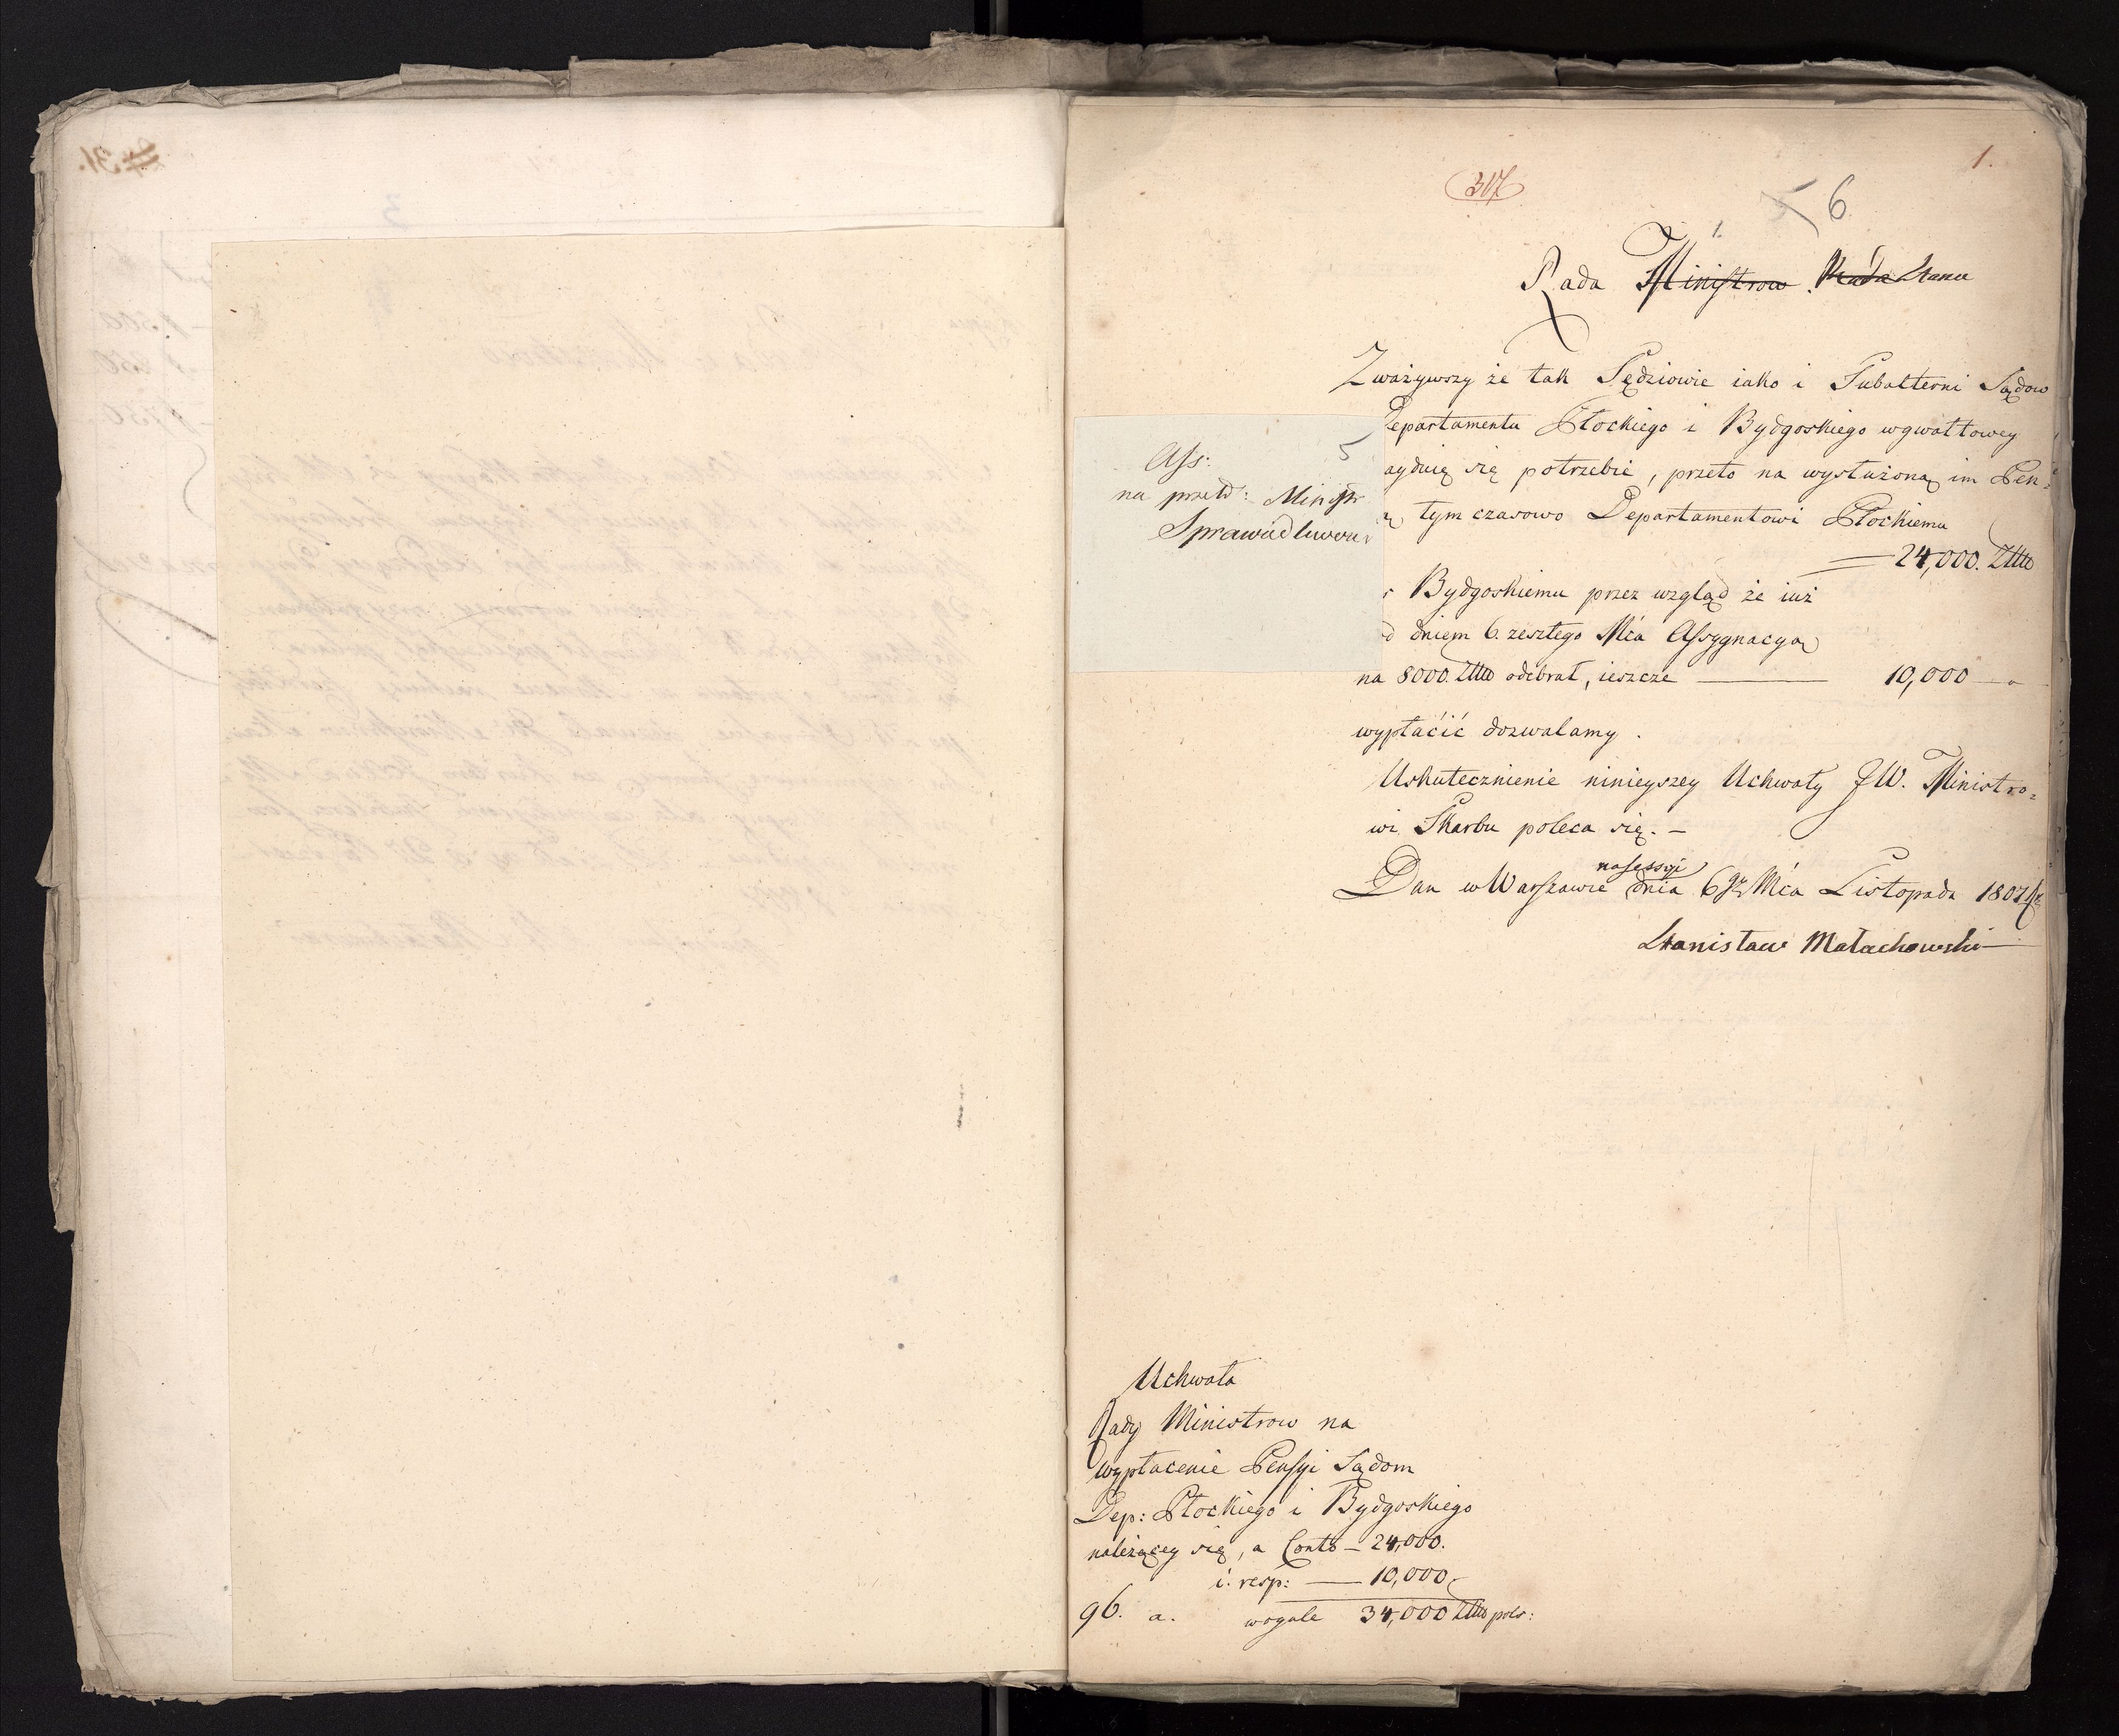 1.
307
5 6
1.
Rada Ministrow Rada Stanu
Zważywszy że tak Sędziowie iako i Subalterni Sądow
Departamentu Płockiego i Bydgoskiego wgwałtowney
ayduią się potrzebie, przeto na wysłużoną im Pen-
tym czasowo Departamentowi Płockiemu
24,000. Złłło
Bydgoskiemu przez wzgląd że iuż
d dniem 6. zeszłego Mca Assygnacyą
na 8000. Złłło odebrał, ieszcze — 10,000 — „
wypłacić dozwalamy.
Uskutecznienie ninieyszey Uchwały JW. Ministro-
wi Skarbu poleca się. —
na sessyi
Dan w Warszawie dnia 6go Mca Listopada 1807
Stanisław Małachowski
5
Ass:
na przeld: Ministr
Sprawiedliwow
Uchwała
Rady Ministrow na
wypłacenie Pensyi Sądom
Dep: Płockiego i Bydgoskiego
należącey się, a Conto — 24,000.
i. resp: — 10,000
96. a. wogule 34,000 Złłło pols: